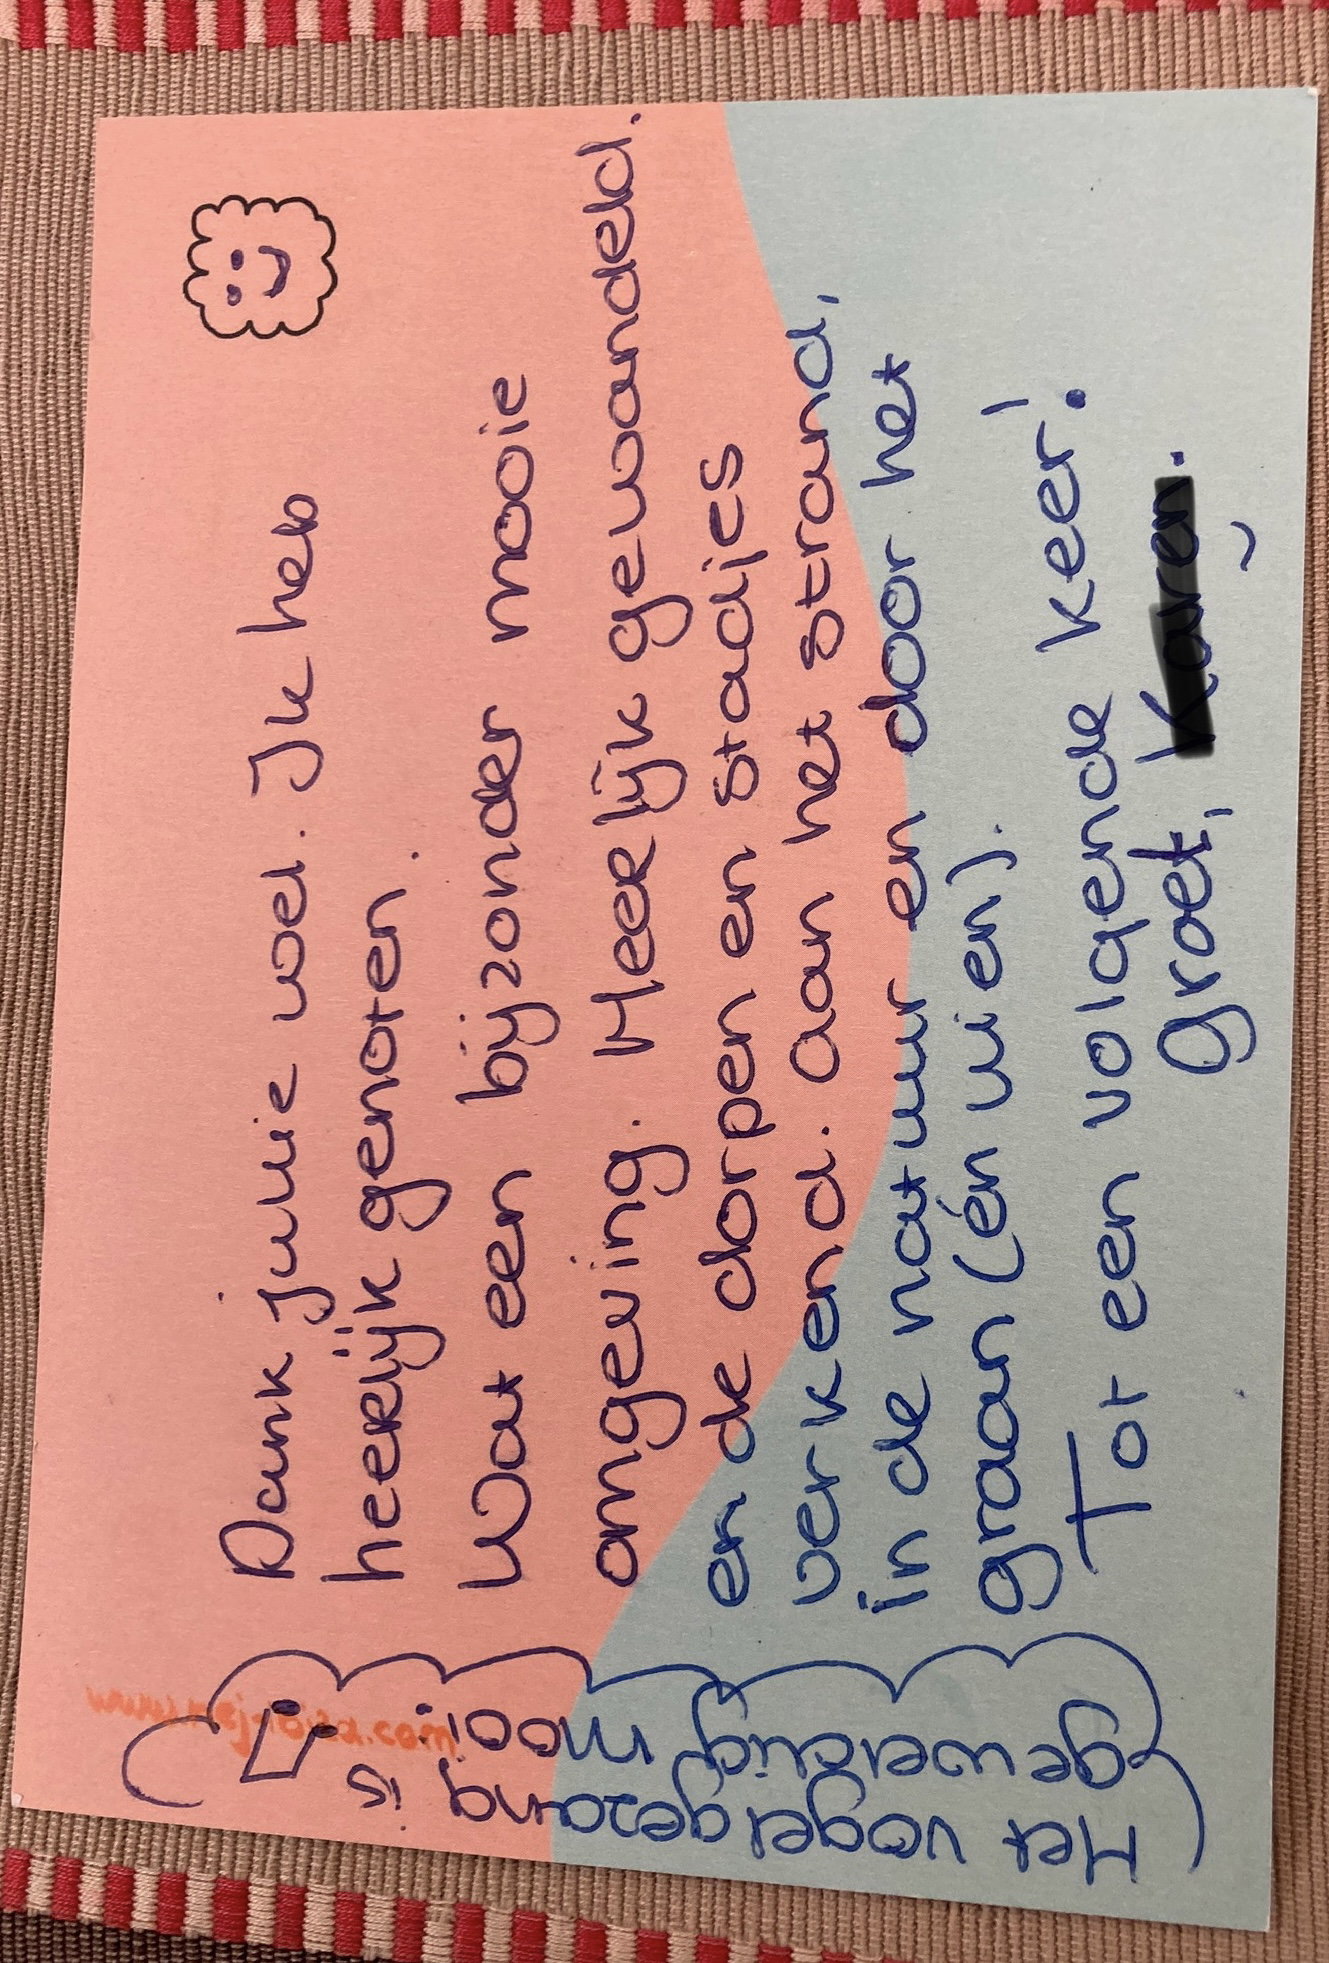 Dank jullie wel. Ik heb
heerlijk genoten.
Wat een bijzonder mooie
omgeving. Heerlijk gewandeld.
en de dorpen en stadjes
verkend. aan het strand,
in de natuur en door het
graan (én uien).
Tot een volgende keer!
groet,
Het vogelgezang is
geweldig mooi.